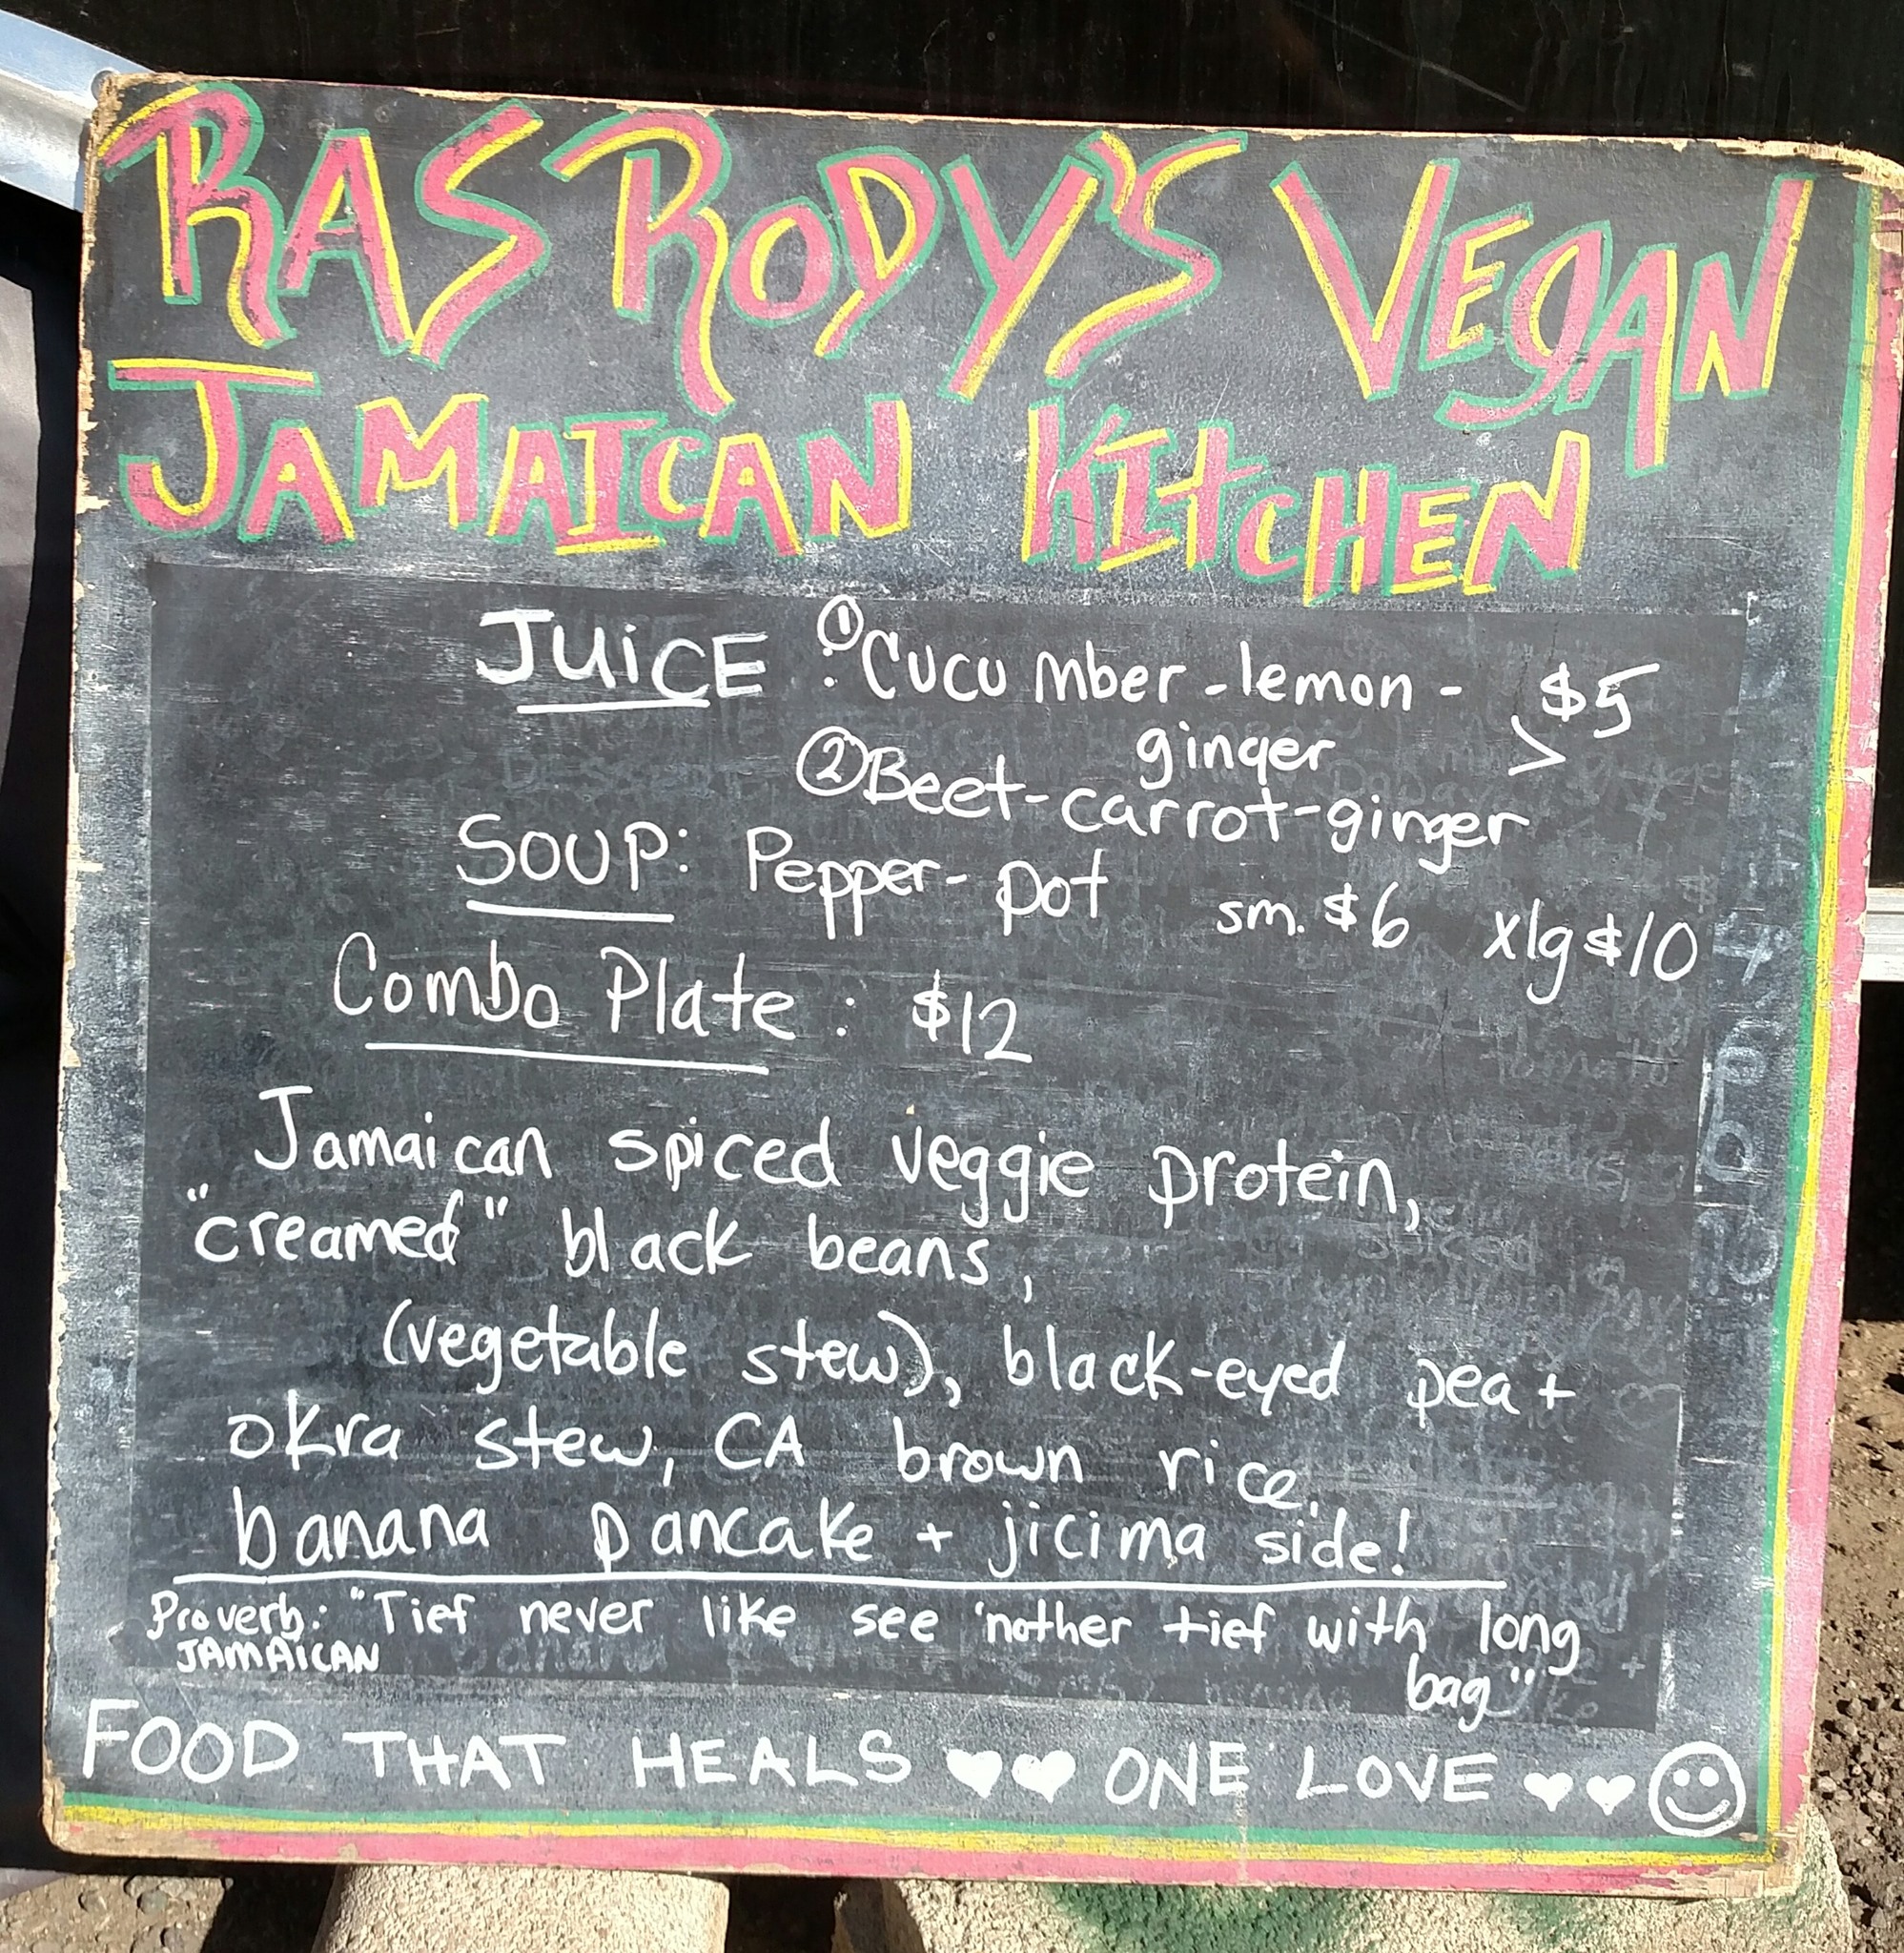 RAS RODY'S VEGAN
JAMAICAN KITCHEN
JUICE : ① Cucumber - lemon - $5
ginger >
② Beet-carrot-ginger
SOUP: Pepper-pot sm. $6 xlg $10
Combo Plate : $12
Jamaican spiced veggie protein,
"creamed" black beans,
(vegetable stew), black-eyed pea +
okra stew, CA brown rice.
banana pancake + jicima side!
Proverb: "Tief never like see 'nother tief with long
JAMAICAN
bag"
FOOD THAT HEALS ♥♥ ONE LOVE ♥♥ ☺